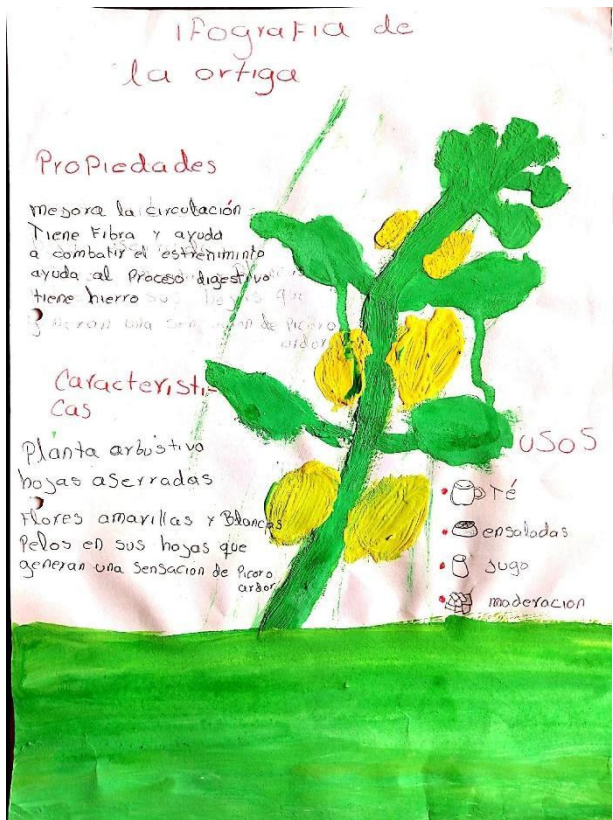 iFografia de
la ortiga
Propiedades
mesora la circulación
Tiene Fibra y ayuda
a combatir el estrenimiento
ayuda al Proceso digestivo
tiene hierro sus hojas que
generan una sensacion de Picoro
ardor
Caracteristi-
cas
Planta arbustiva
hojas aserradas
Flores amarillas y Blancas
Pelos en sus hojas que
generan una sensacion de Picoro
ardor
USOS
Té
ensaladas
Jugo
moderacion